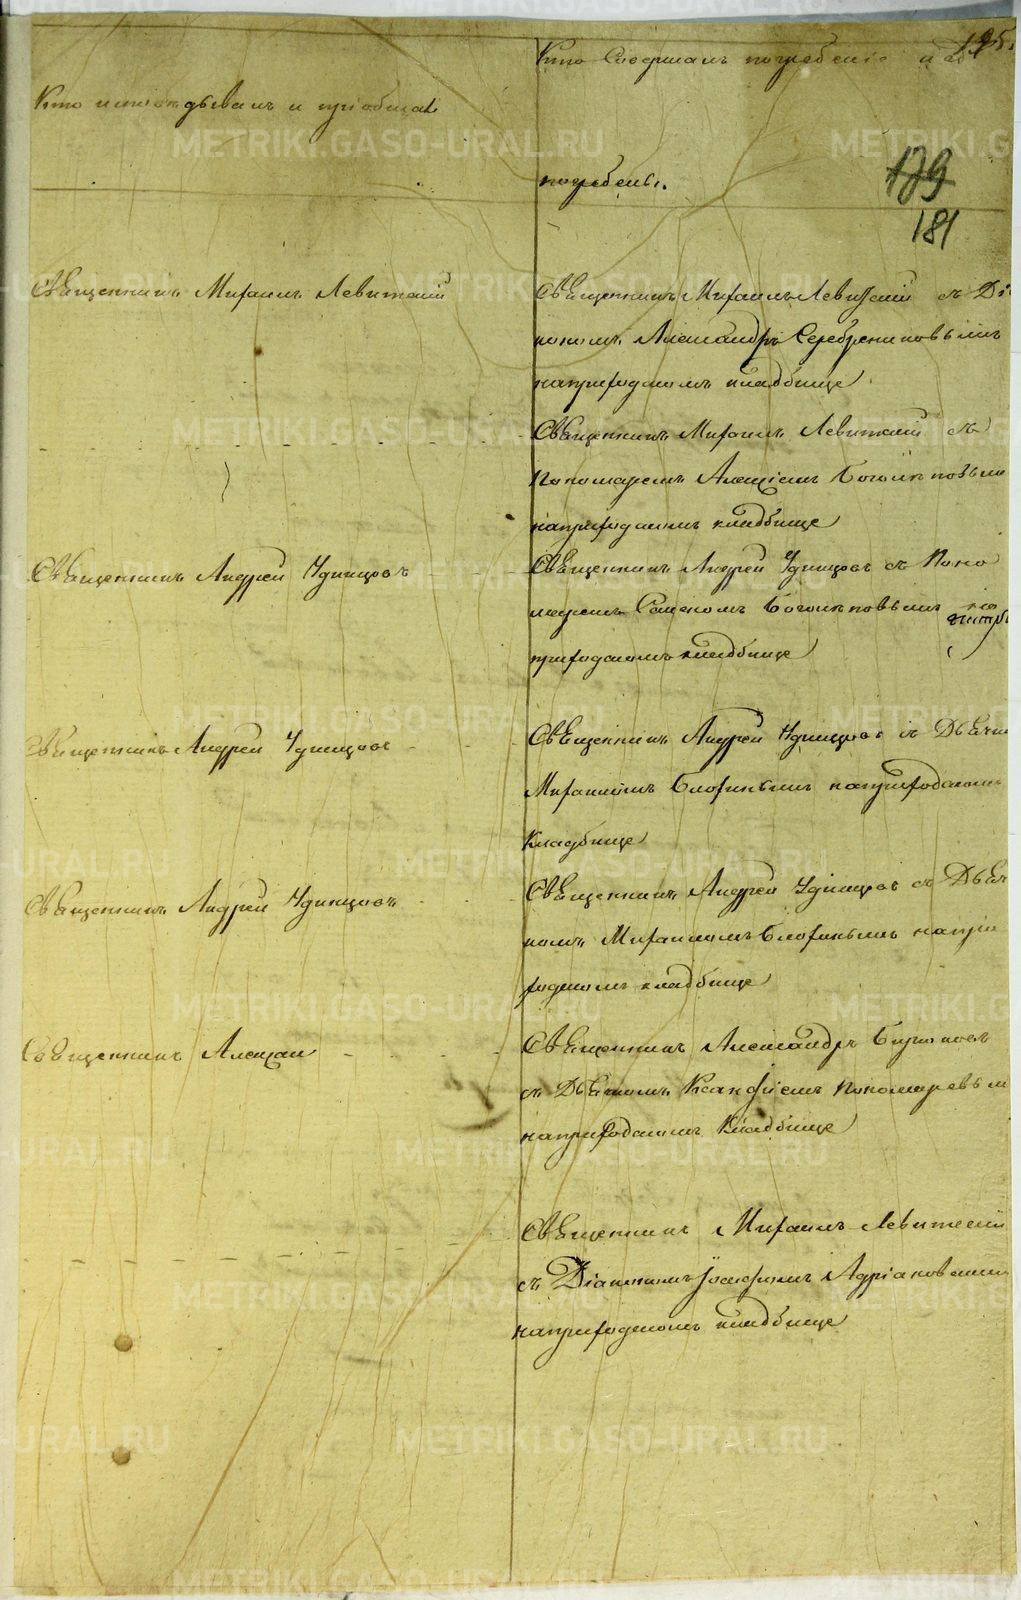 195.
Кто совершалъ погребеніе и гдѣ
Кто исповѣдывалъ и пріобщалъ
погребены.
179
181
Священникъ Михаилъ Левитскій
Священникъ Михаилъ Левитскій съ Діа
кономъ Александръ Серебрениковымъ
наприходскомъ кладбище
Священникъ Михаилъ Левитскій съ
Пономаремъ Алексіемъ
наприходскомъ кладбище
Священникъ Андрей Удинцовъ
Священникъ Андрей Удинцовъ съ Поно
маремъ на
приходскомъ кладбище
Священникъ Андрей Удинцовъ
Священникъ Андрей Удинцовъ съ Дьячко
Михаиломъ наприходскомъ
Кладбище
Священникъ Андрей Удинцовъ
Священникъ Андрей Удинцовъ съ Дьяч
комъ Михаиломъ напри
ходскомъ кладбище
Священникъ Алексан
Священникъ Александръ Бирюковъ
съ Дьячкомъ Ксанфіемъ Пономаревым
наприходскомъ Кладбище
Священникъ Михаилъ Левитскій
съ Діакономъ Іосифомъ Адріановским
наприходскомъ кладбище
METRIKI.GASO-URAL.RU